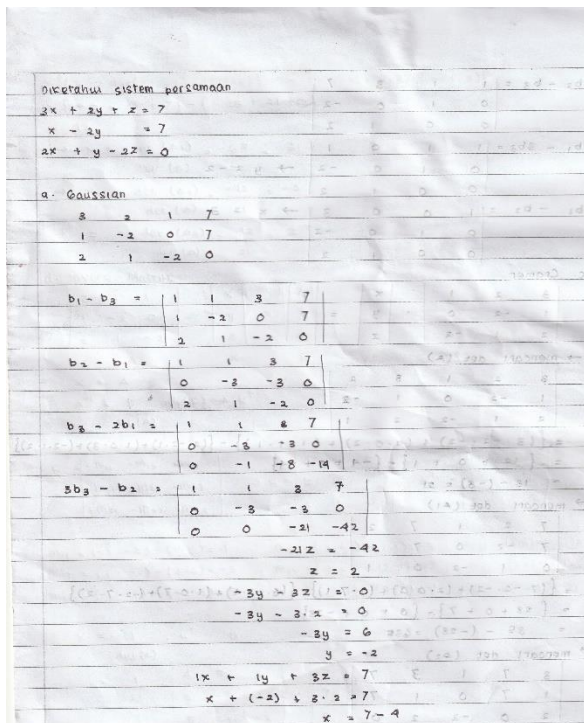 Diketahui sistem persamaan
3x + 2y + z = 7
x - 2y = 7
2x + y - 2z = 0
a. Gaussian
3 2 1 7
1 -2 0 7
2 1 -2 0
b1 - b3 = | 1 1 3 7 |
| 1 -2 0 7 |
| 2 1 -2 0 |
b2 - b1 = | 1 1 3 7 |
| 0 -3 -3 0 |
| 2 1 -2 0 |
b3 - 2b1 = | 1 1 3 7 |
| 0 -3 -3 0 |
| 0 -1 -8 -14 |
3b3 - b2 = | 1 1 3 7 |
| 0 -3 -3 0 |
| 0 0 -21 -42 |
-21z = -42
z = 2
-3y - 3z = 0
-3y - 3.2 = 0
-3y = 6
y = -2
1x + 1y + 3z = 7
x + (-2) + 3.2 = 7
x = 7-4